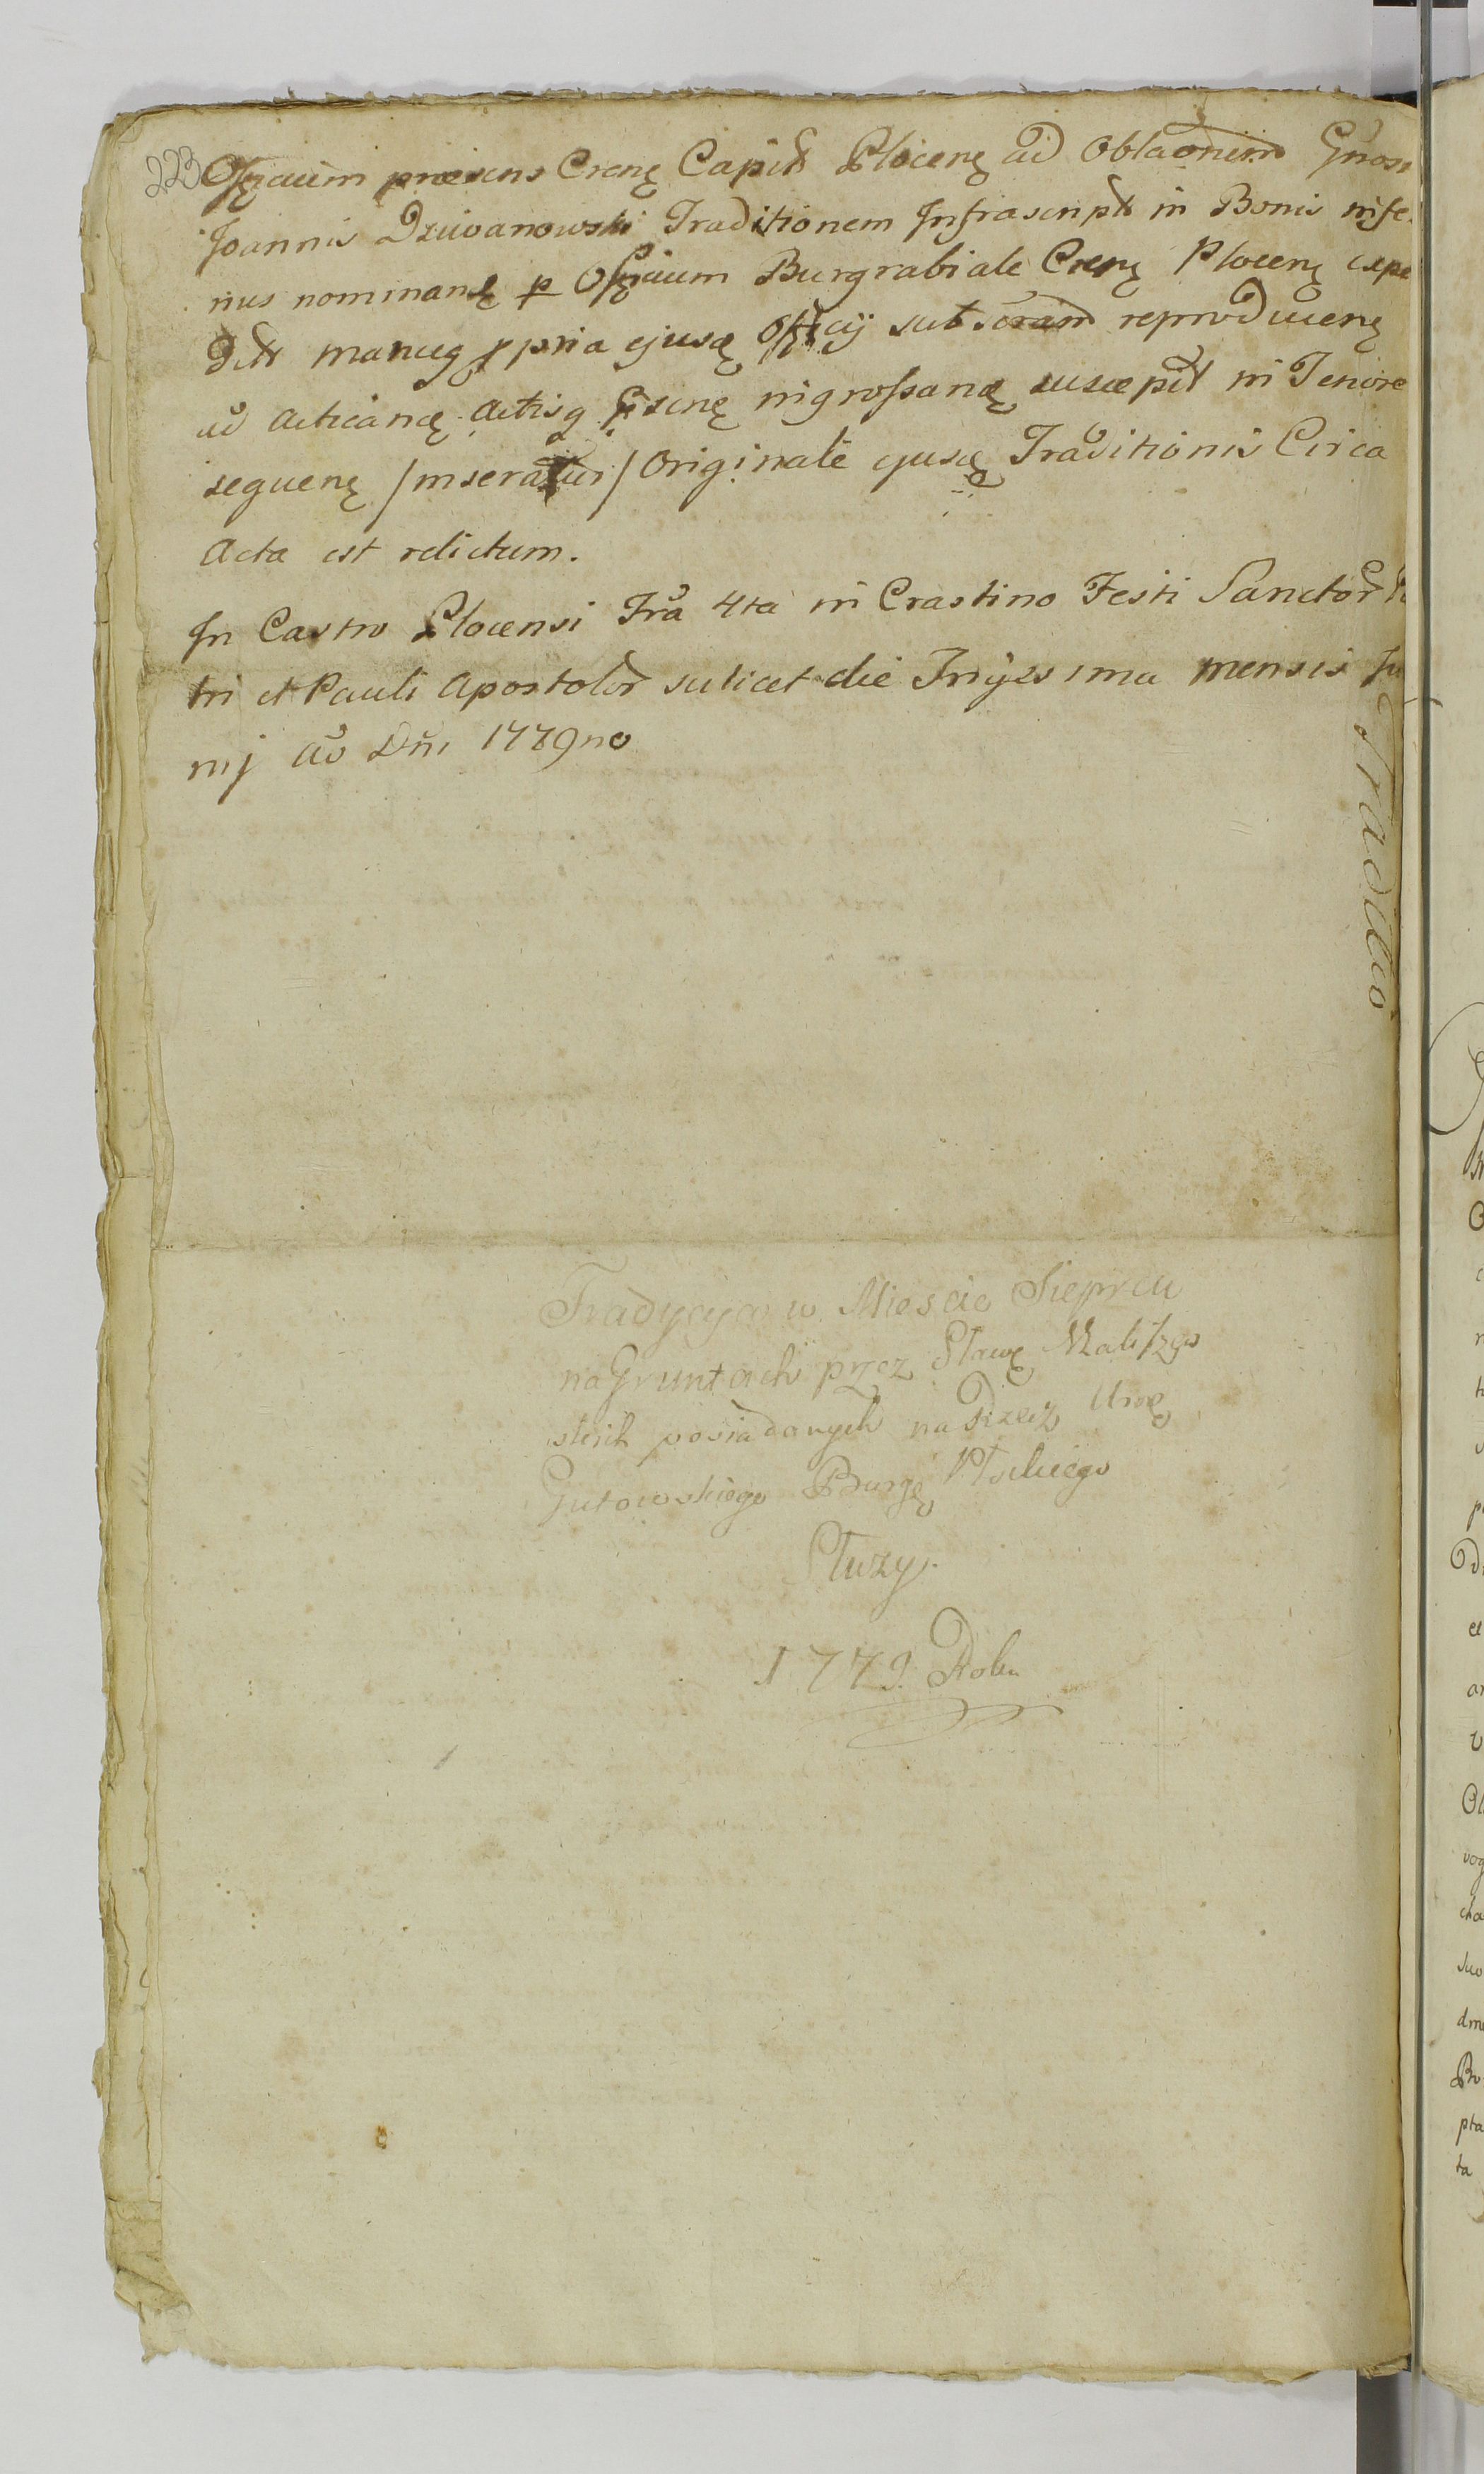 223
Officium præsens Crenę Capit Plocenę ad Oblaonem Gnosi
Joannis Dziwanowski Traditionem Infrascript in Bonis infe-
rius nominanę p Officium Burgrabiale Crenę Plocenę expe
dit manuq ppria ejusę Officij subscram reproducenę
ad acticanę actisq ingrossanę suscepit in Tenore
sequenę /inseratur/ Originale ejusę Traditionis Circa
Acta est relictum.
In Castro Plocensi Fra 4ta in Crastino Festi Sanctor Pe
tri et Pauli Apostolor scilicet die Trigesima mensis Ju
nij Ao Dni 1779no
Traditio
Tradycya w Miescie Sieprcu
na Gruntach przez Sławę Maliszew
skich posiadanych na Rzecz Uroę
Gutowskiego Burgę Płockiego
Służy.
1779. Roku